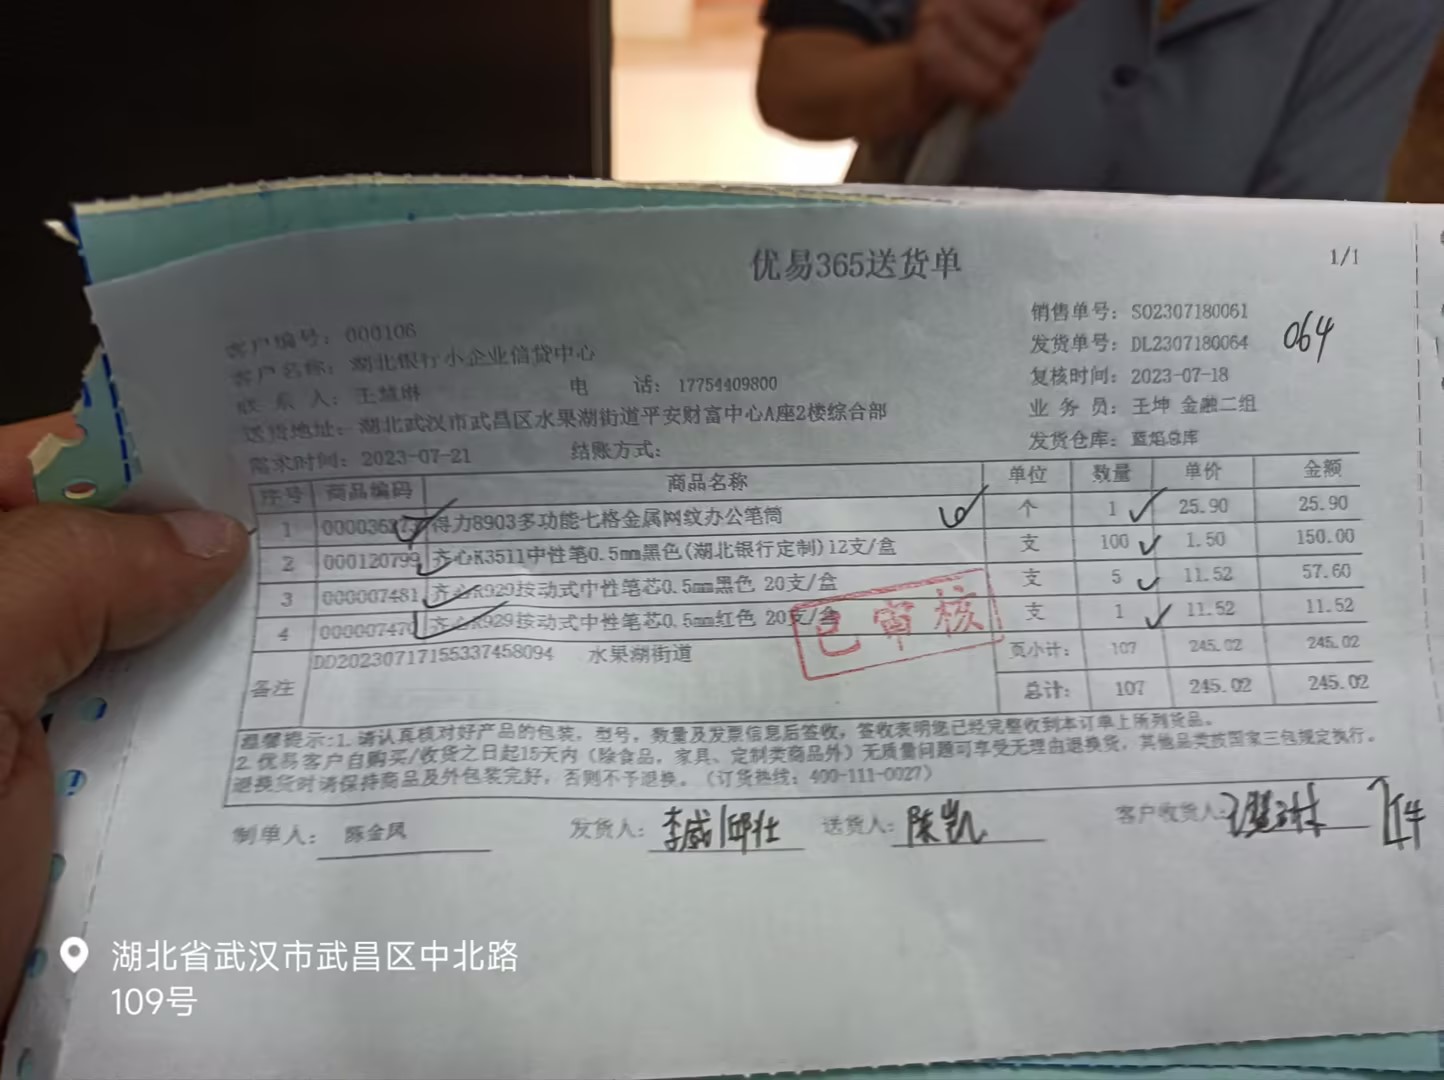 优易365送货单
1/1
客户编号: 000106
销售单号: SO2307180061
客户名称: 湖北银行小企业信贷中心
发货单号: DL2307180064
064
联 系 人: 王慧琳 电 话: 17754409800
复核时间: 2023-07-18
送货地址: 湖北武汉市武昌区水果湖街道平安财富中心A座2楼综合部
业 务 员: 王坤 金融二组
需求时间: 2023-07-21 结账方式:
发货仓库: 蓝焰总库
序号 商品编码 商品名称 单位 数量 单价 金额
1 得力8903多功能七格金属网纹办公笔筒 个 1 25.90 25.90
2 000120799 齐心K3511中性笔0.5mm黑色(湖北银行定制)12支/盒 支 100 1.50 150.00
3 000007481 齐心R929按动式中性笔芯0.5mm黑色 20支/盒 支 5 11.52 57.60
4 000007470 齐心R929按动式中性笔芯0.5mm红色 20支/盒 支 1 11.52 11.52
已审核
备注 DD20230717155337458094 水果湖街道
页小计: 107 245.02 245.02
总计: 107 245.02 245.02
温馨提示:1. 请认真核对好产品的包装, 型号, 数量及发票信息后签收, 签收表明您已经完整收到本订单上所列货品。
2. 优易客户自购买/收货之日起15天内 (除食品, 家具、定制类商品外) 无质量问题可享受无理由退换货, 其他品类按国家三包规定执行。
退换货时请保持商品及外包装完好, 否则不予退换。 (订货热线: 400-111-0027)
制单人: 陈金凤 发货人: 李威 邱仕 送货人: 陈凯 客户收货人: 王慧琳
湖北省武汉市武昌区中北路
109号